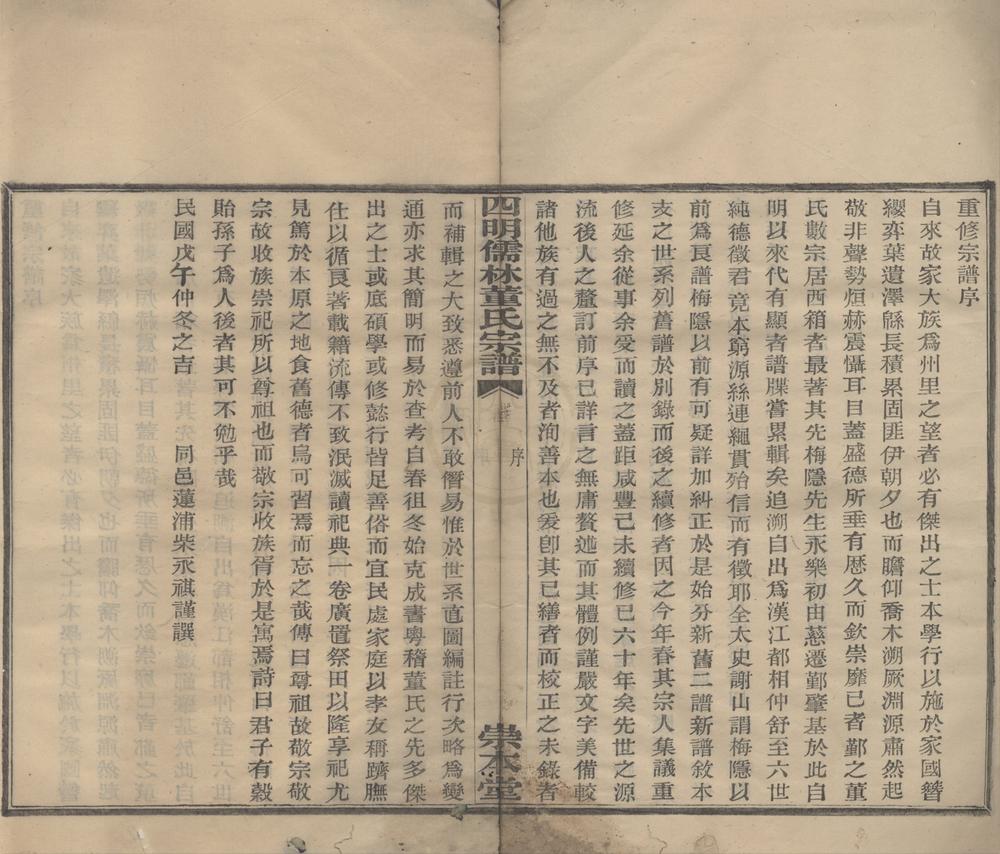 重修宗譜序
自來故家大族爲州里之望者必有傑出之士本學行以施於家國簪
纓弈葉遺澤緜長積累固匪伊朝夕也而瞻仰喬木溯厥淵源肅然起
敬非聲勢烜赫震懾耳目蓋盛德所垂有歷久而欽崇靡已者鄞之董
氏數宗居西箱者最著其先梅隱先生永樂初由慈遷鄞肇基於此自
明以來代有顯者譜牒嘗累輯矣追溯自出爲漢江都相仲舒至六世
純德徵君竟本窮源絲連繩貫殆信而有徵耶全太史謝山謂梅隱以
前爲民譜梅隱以前有可疑詳加糾正於是始分新舊二譜新譜敘本
支之世系列舊譜於別錄而後之續修者因之今年春其宗人集議重
修延余從事余受而讀之蓋距咸豐己未續修已六十年矣先世之源
流後人之釐訂前序已詳言之無庸贅述而其體例謹嚴文字美備較
諸他族有過之無不及者洵善本也爰卽其已繕者而校正之未錄者
四明儒林董氏宗譜
序
崇本堂
而補輯之大致悉遵前人不敢僭易惟於世系直圖編註行次略爲變
通亦求其簡明而易於查考自春徂冬始克成書粤稽董氏之先多傑
出之士或底碩學或修懿行皆足善俗而宜民處家庭以孝友稱躋膴
仕以循良著載籍流傳不致泯滅讀祀典一卷廣置祭田以隆享祀尤
見篤於本原之地食舊德者烏可習焉而忘之哉傳曰尊祖故敬宗敬
宗故收族崇祀所以尊祖也而敬宗收族胥於是寓焉詩曰君子有穀
貽孫子爲人後者其可不勉乎哉
民國戊午仲冬之吉　同邑蓮浦柴永祺謹譔